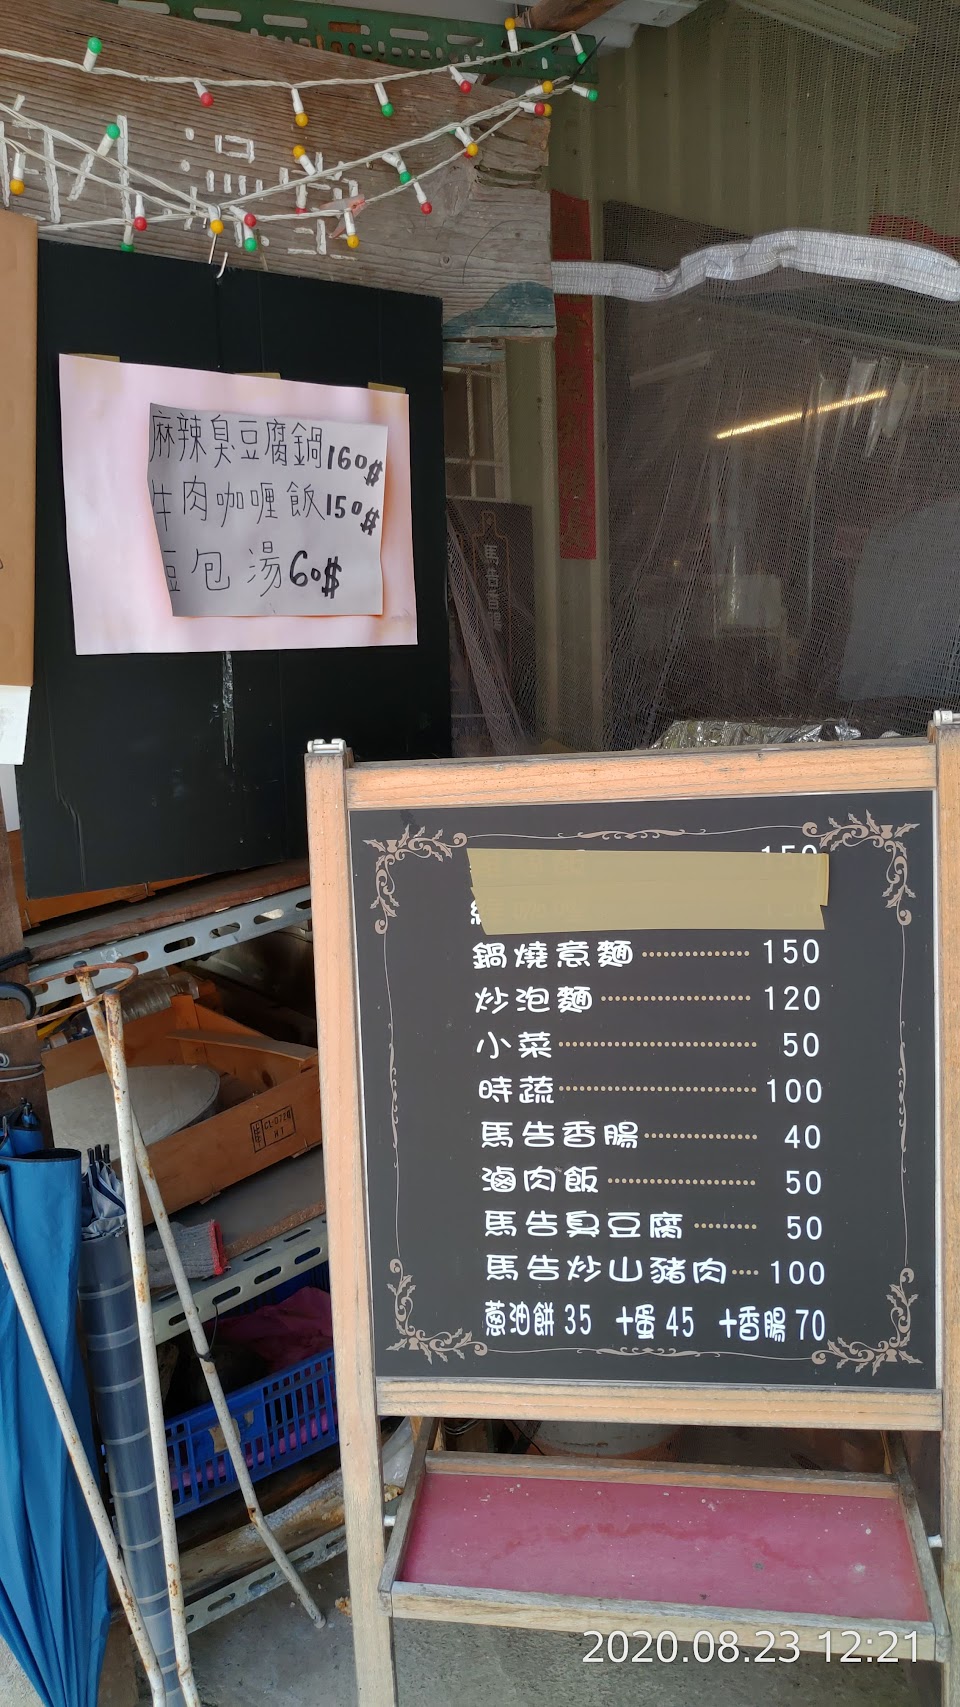 麻辣臭豆腐鍋160$
牛肉咖喱飯150$
豆包湯60$
馬告香腸
150
鍋燒意麵 150
炒泡麵 120
小菜 50
時蔬 100
馬告香腸 40
滷肉飯 50
馬告臭豆腐 50
馬告炒山豬肉 100
蔥油餅 35 +蛋 45 +香腸 70
2020.08.23 12:21